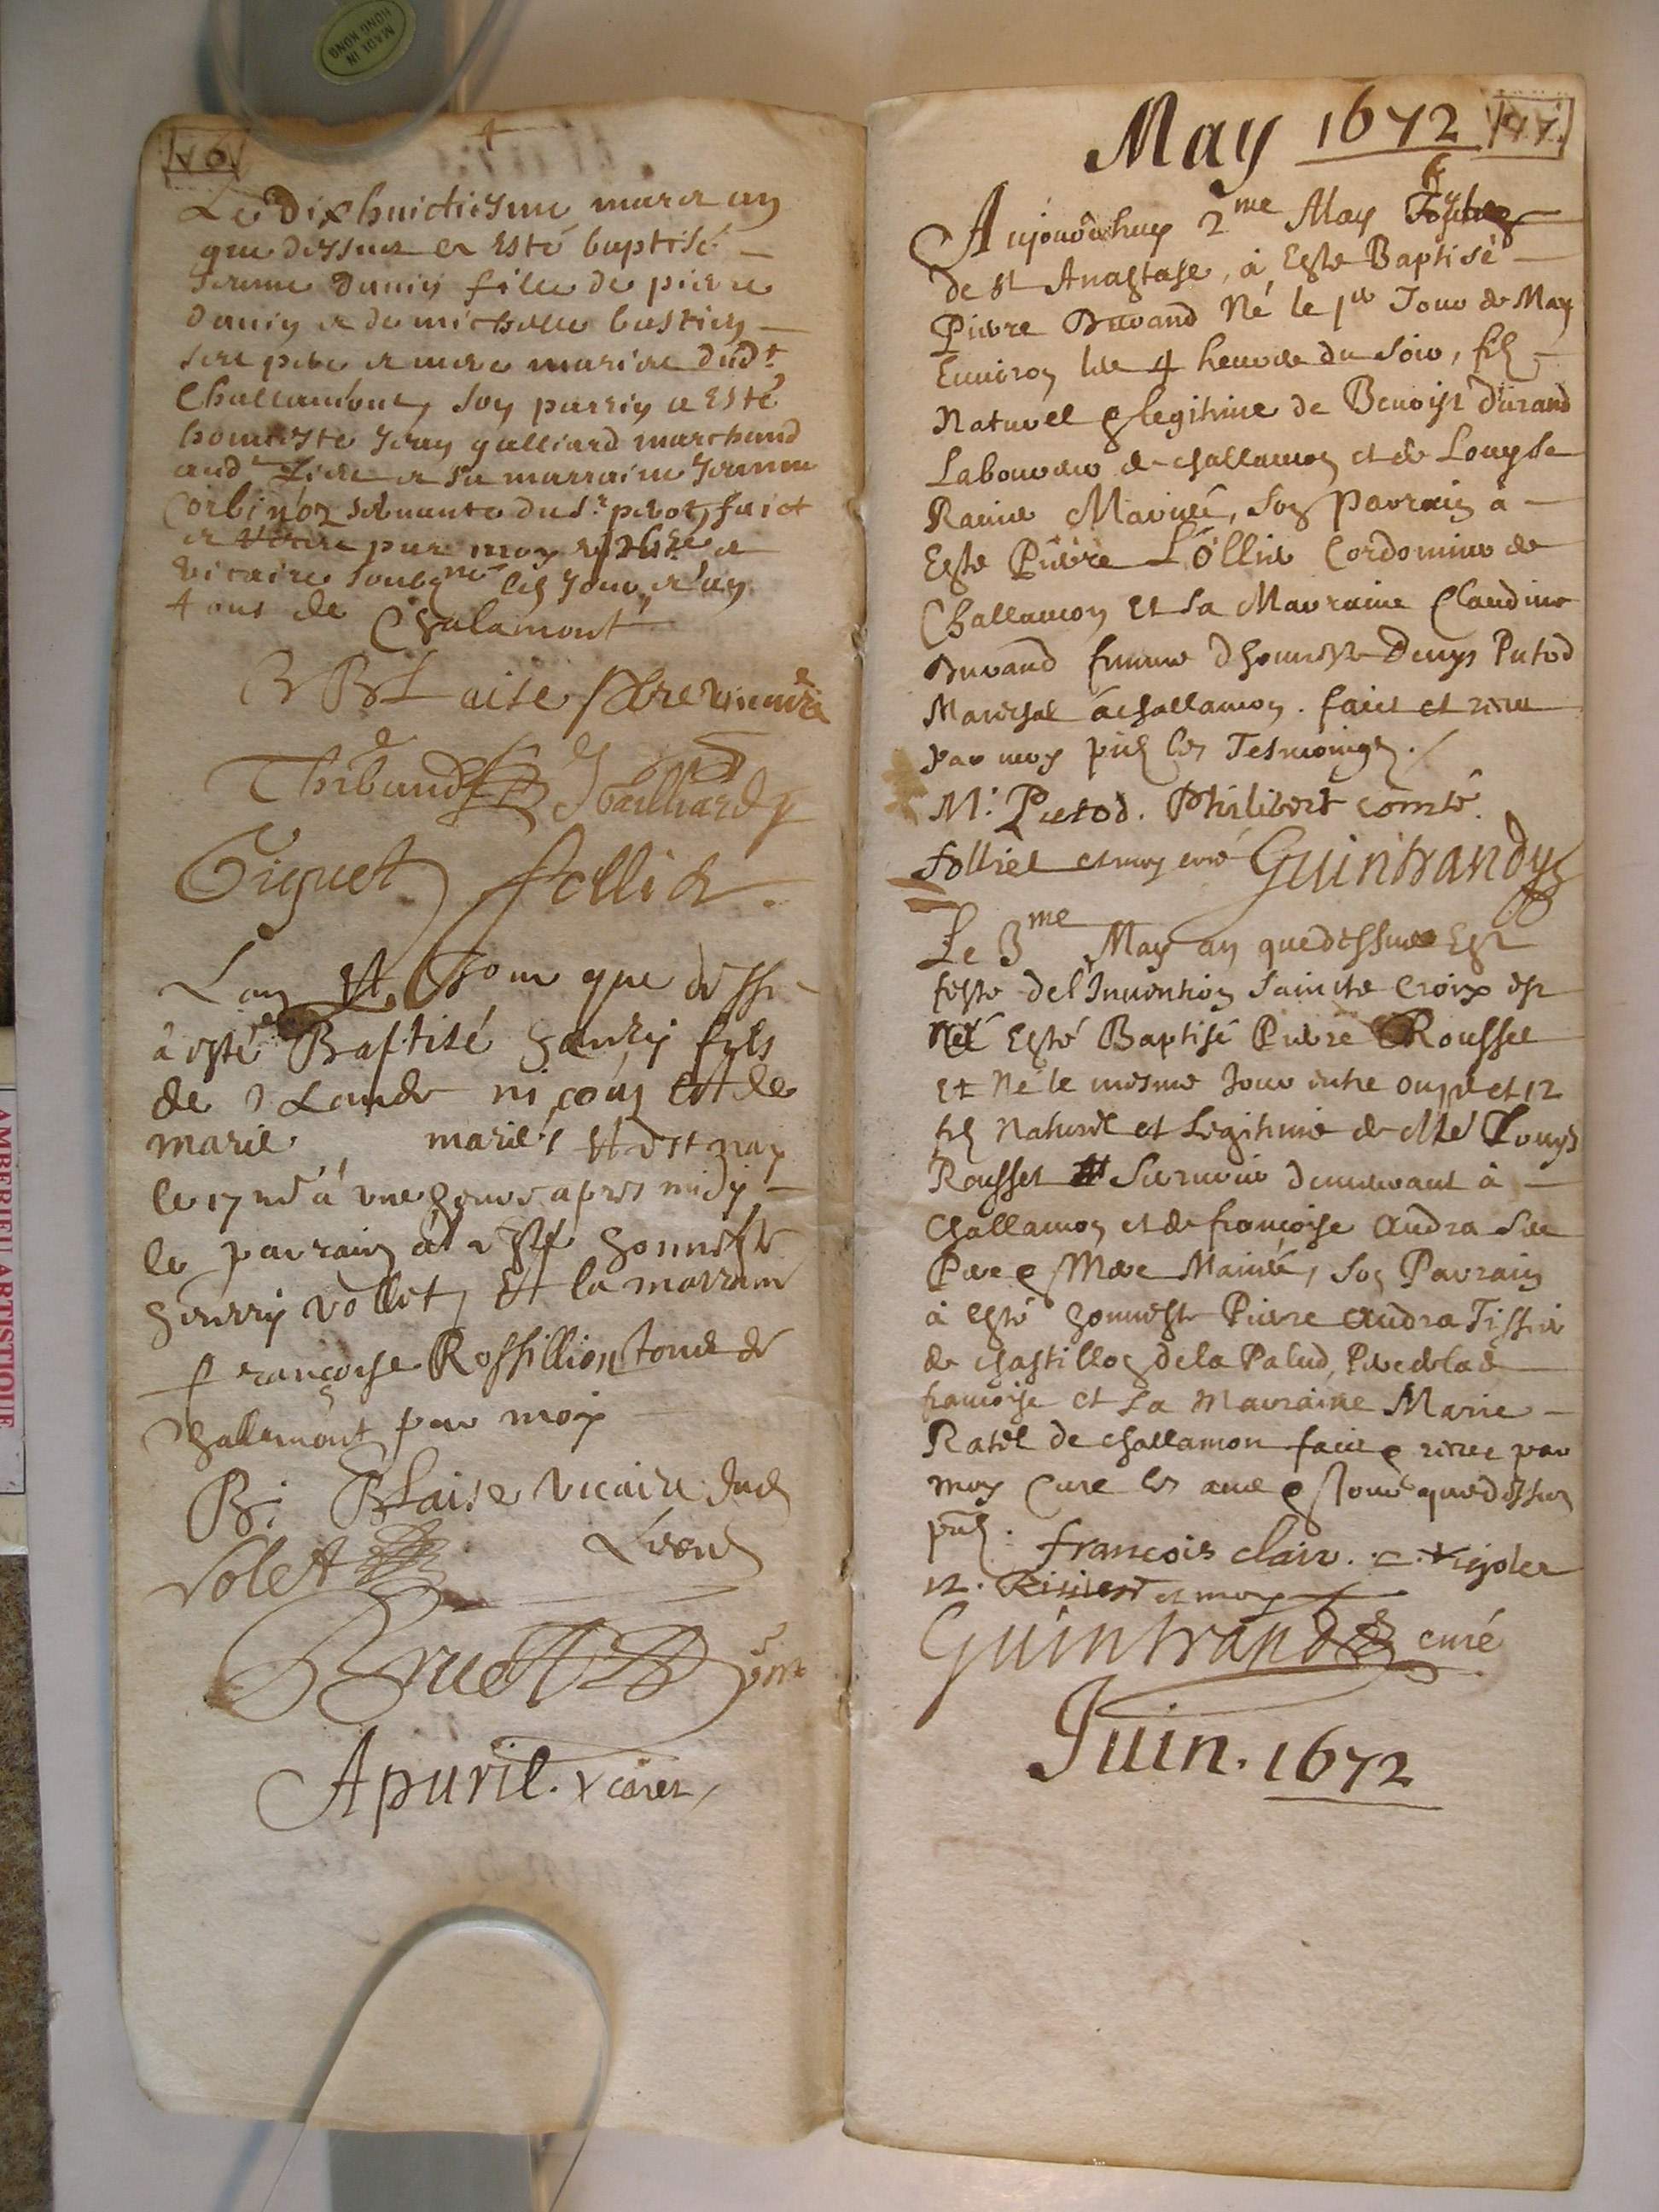 MADE IN
HONG KONG
Le dixhuictiesme mars an
que dessus a esté baptisé
fille de pierre
et de michelle bastien
ses pere et mere mariés dudt
Challamont, son parrin a esté
honneste Jean galliard marchand
audt lieu et sa marraine Jeanne
servante du Sr faict
par moy et
vicaire soubzne les jour et an
tous de Chalamont
B BLaise
Thibaud Gailliard
Giguet follied
Lan Et Jour que dessus
à esté Baptisé henry fils
de Lande niçoud Et de
marie mariés Et est nay
le 17 à une heure apres midy
le parrain at esté honneste
henrry vollet, Et la marrain
françoise Rossillion tous de
Challamont par moy
B: BLaise vicaire dud
Volet Lieud
Bruet
Apuril. vicaires
May 1672
Aujourdhuy 2me May
de st Anastase, à Esté Baptisé
Pierre Durand Né le 1er Jour de May
Environ les 4 heures du soir, fils
Naturel & legitime de Benoist durand
Laboureur de challamon et de Louyse
Ravier Mariés, son Parrain à
Esté Pierre follier Cordonnier de
Challamon Et sa Marraine Claudine
Durand femme dhonneste Denys Putod
Mareschal à challamon. faict et receu
par moy pnts les Tesmoings.
M: Putod. Philibert comte.
follliet et moy curé Guintrandy
Le 3me May an que dessus Est
feste de l'Invention saincte Croix est
Esté Baptisé Pierre Roussel
Et Né le mesme Jour entre onze et 12
fils Naturel et Legitime de Me Louys
Rousset demeurant à
Challamon et de françoise audra ses
Pere & Mere Mariés, son Parrain
à Esté honneste Pierre audra Tissier
de chastillon de la Palud, Pere de lad
françoise et sa Marraine Marie
Ratel de challamon faict & receu par
moy Curé les ans & Jour que dessus
pnts. francois clair.
et moy
Guintrandy curé
Juin. 1672
AMBERIEU ARTISTIQUE